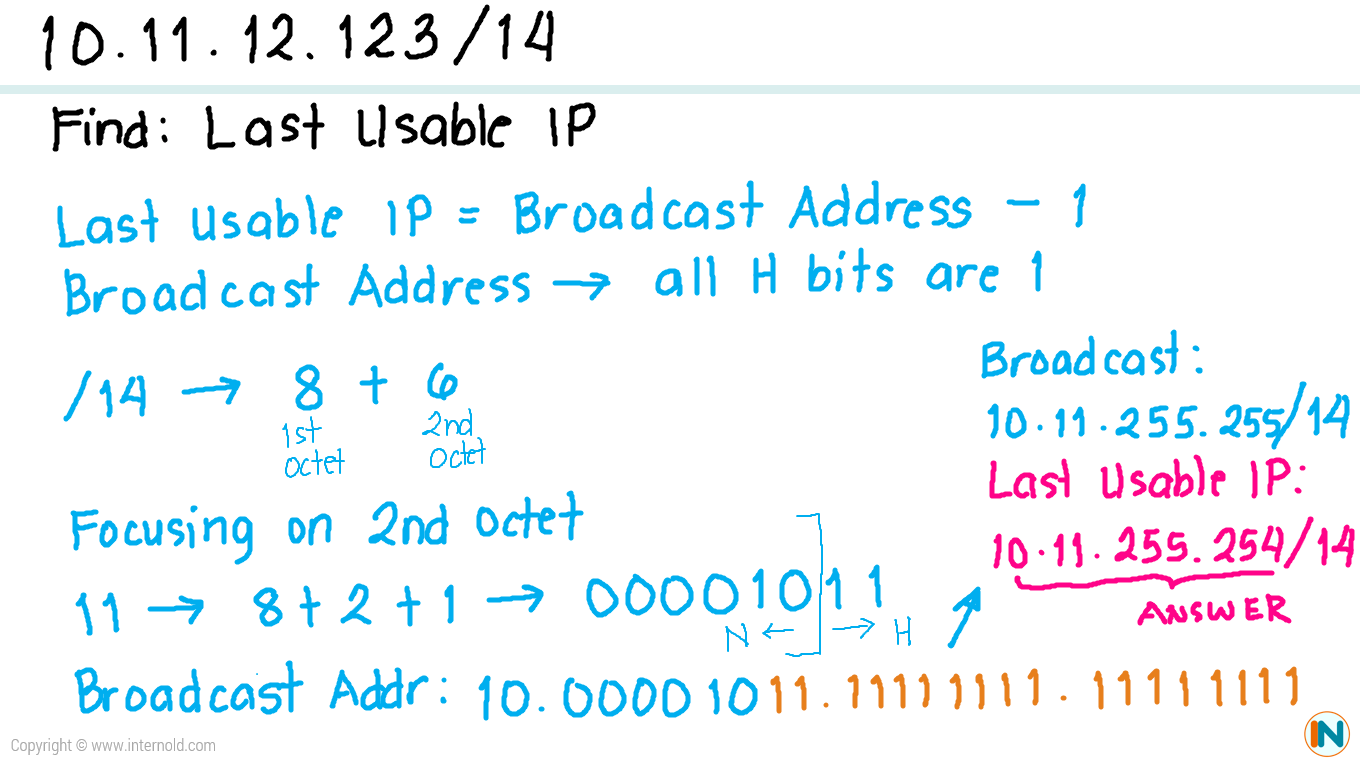 10.11.12.123/14
Find: Last Usable IP
Last Usable IP = Broadcast Address - 1
Broadcast Address → all H bits are 1
/14 → 8 + 6
1st Octet
2nd Octet
Focusing on 2nd Octet
11 → 8 + 2 + 1 → 00001011
N ← → H
Broadcast Addr: 10.00001011.11111111.11111111
Broadcast:
10.11.255.255/14
Last Usable IP:
10.11.255.254/14
ANSWER
Copyright © www.internold.com
IN